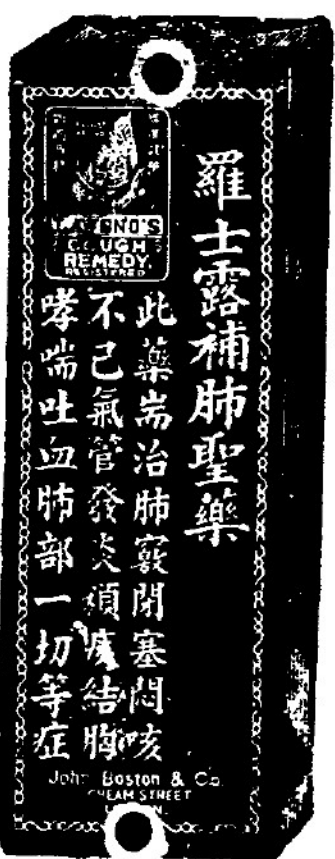 羅士露補肺聖藥
COUGH
REMEDY.
REGISTERED
此藥耑治肺竅閉塞悶咳
不已氣管發炎頑痰結胸
哮喘吐血肺部一切等症
John Boston & Co.
CHEAM STREET